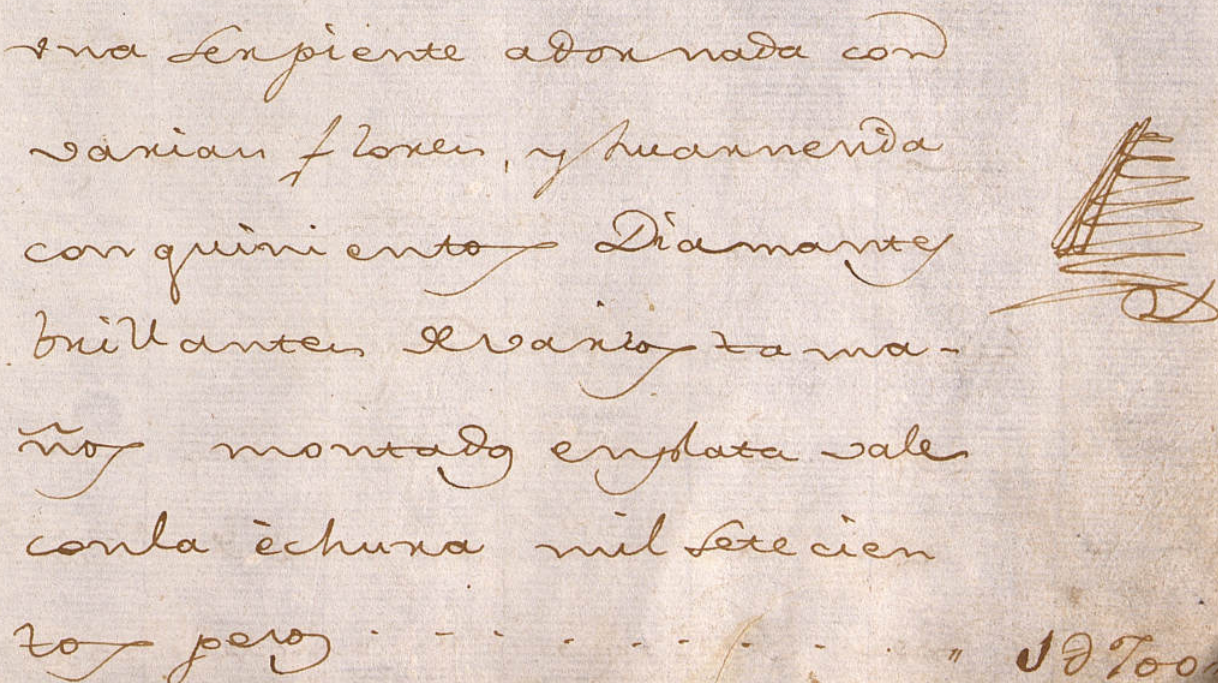 vna serpiente adornada con
varias flores, y huarnesida
con quinientos Diamantes
brillantes de varios tama-
ños montados en plata vale
con la èchura mil setecien
tos pesos . . . . . . . . . . . " 1d700